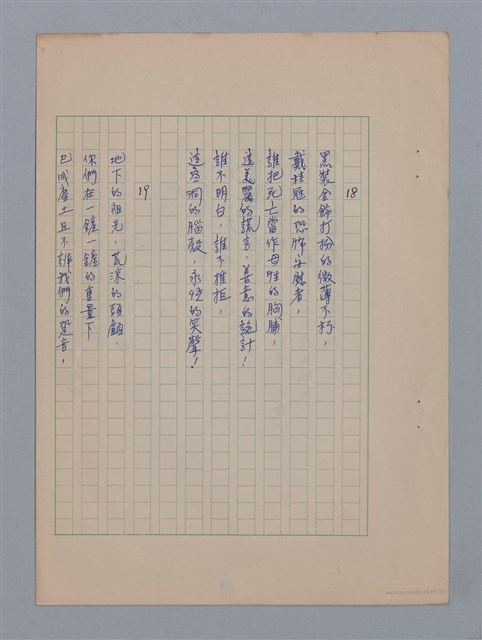 18
黑裝金飾打扮的微薄不朽，
戴桂冠的恐怖安慰者，
誰把死亡當作母性的胸脯，
這美麗的謊言，善意的詭計！
誰不明白，誰不推拒，
這空洞的腦殼，永恆的笑聲！
19
地下的祖先，荒涼的頭顱，
你們在一鏟一鏟的重量下
已成塵土且不辨我們的跫音，